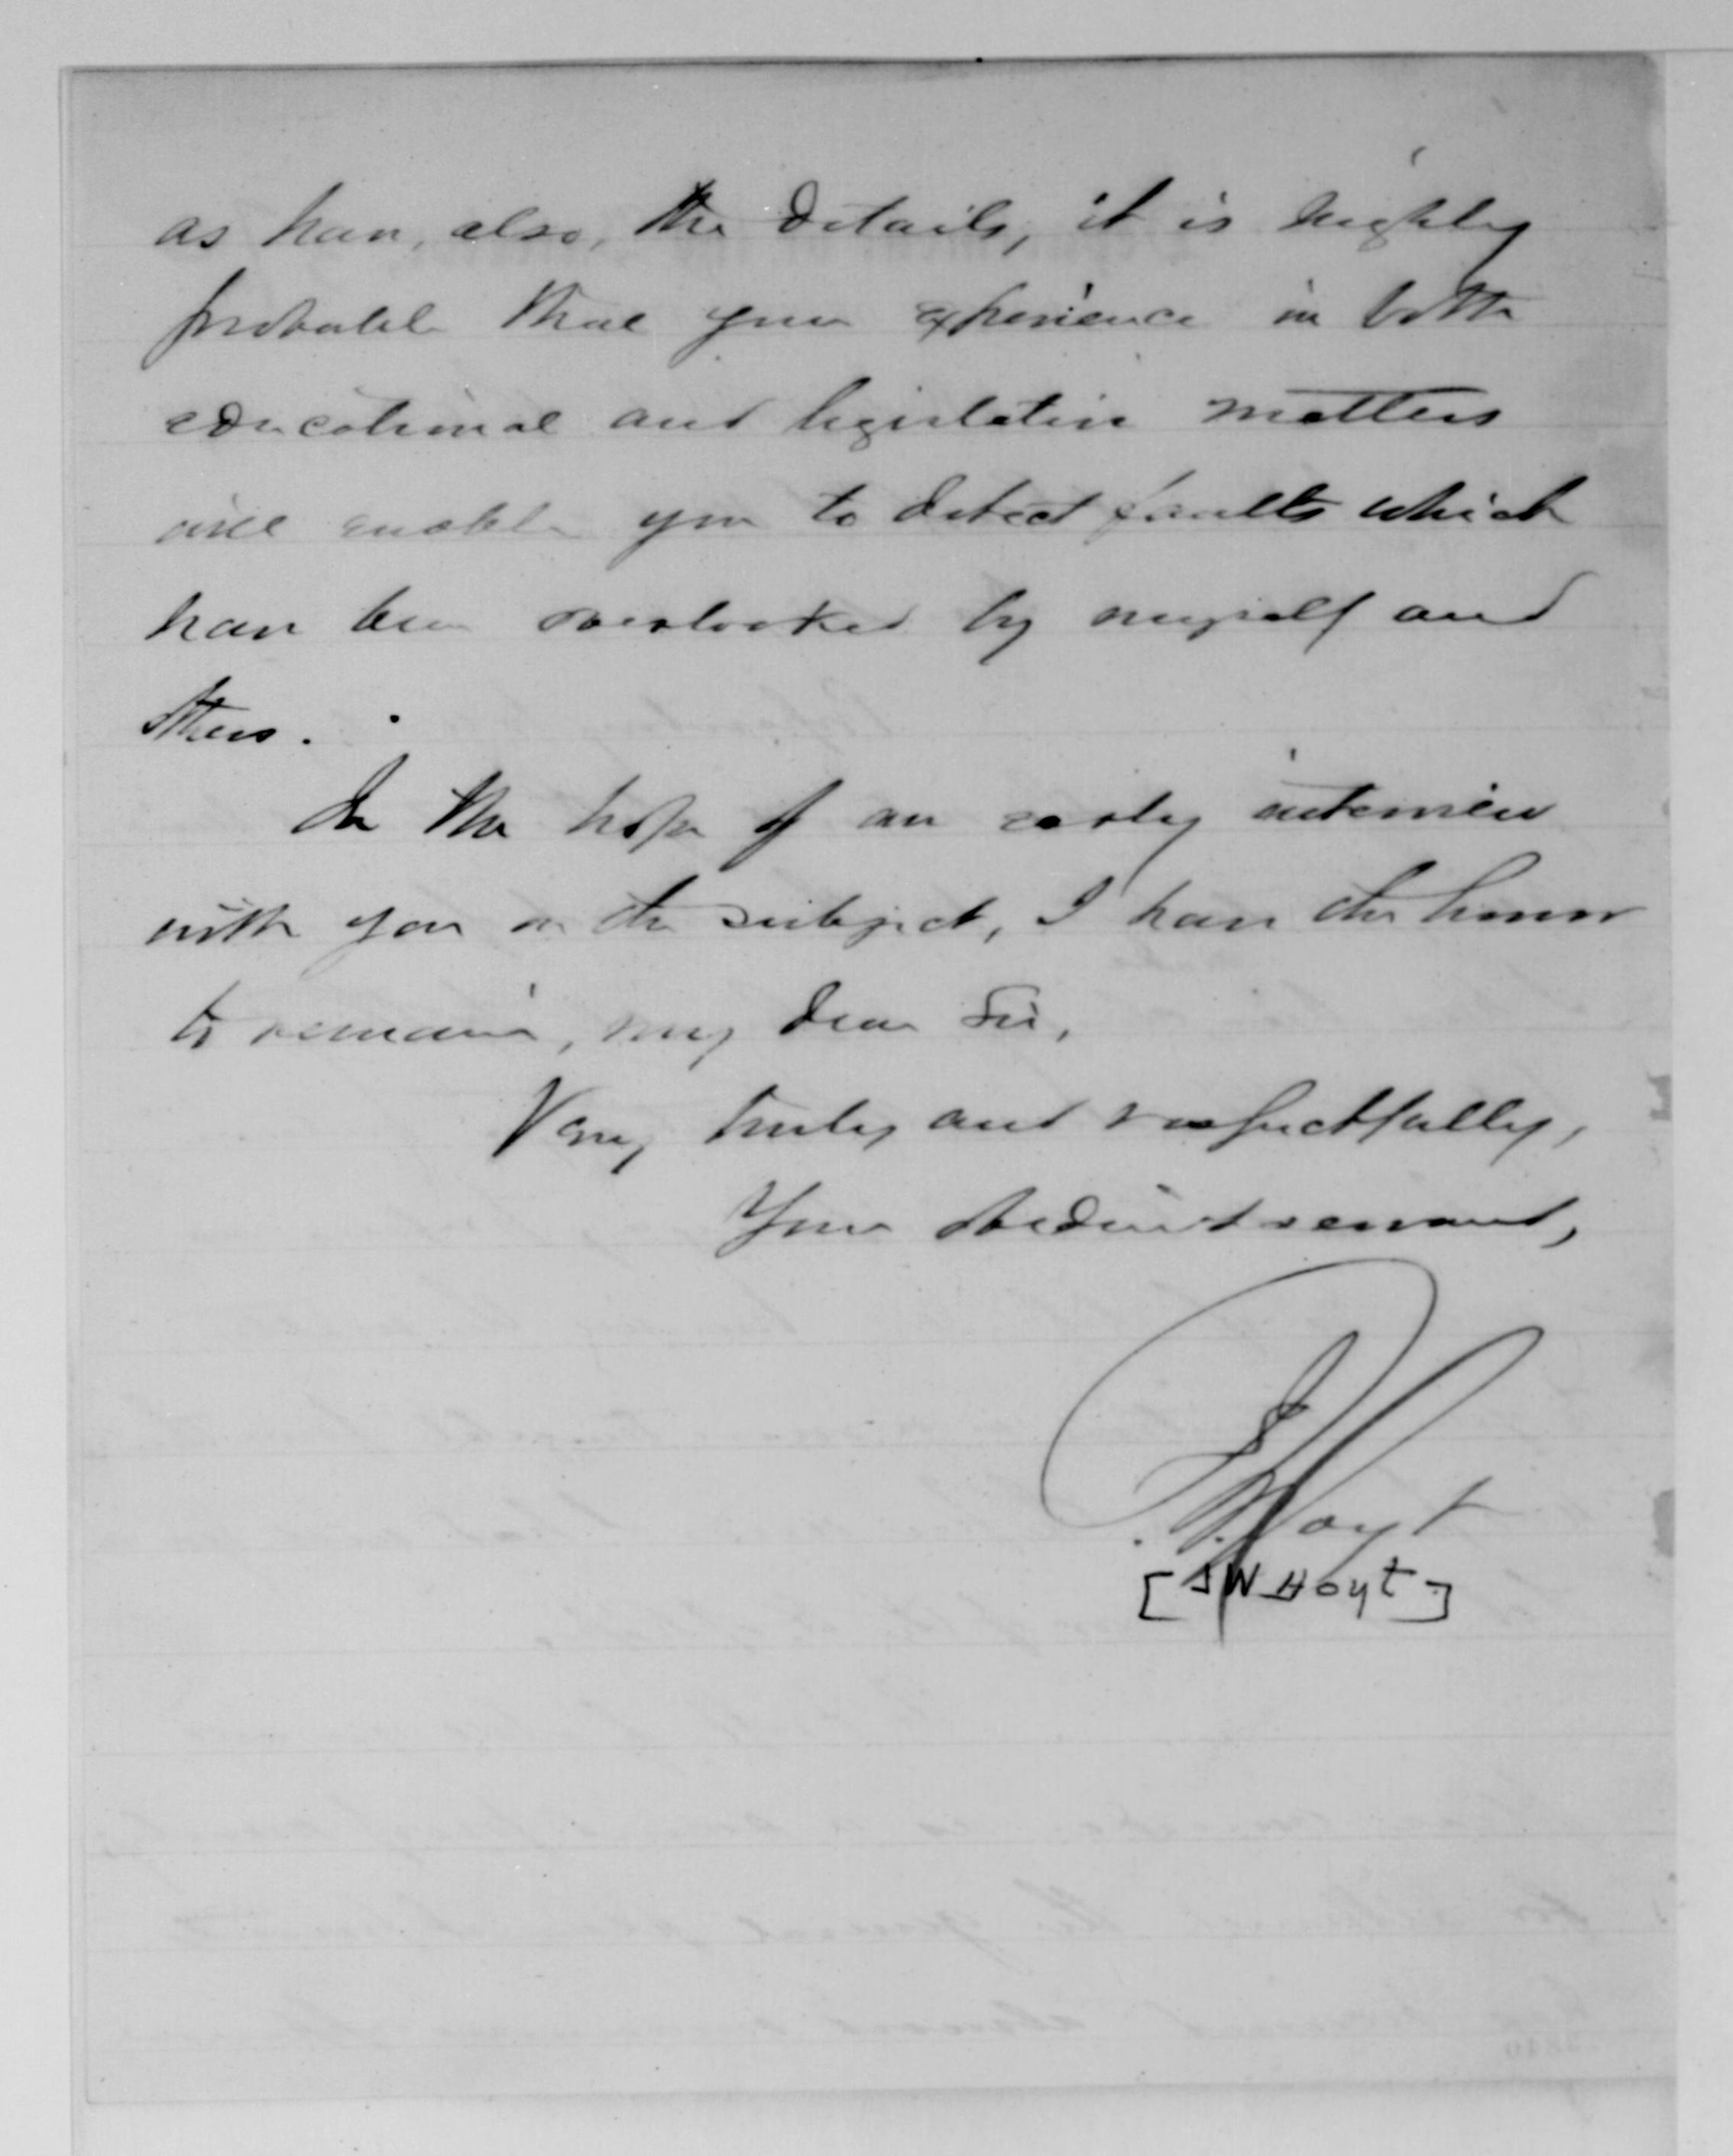 as have, also, the details, it is highly
probable that your experience in both
educational and legislative matters
will enable you to detect faults which
have been overlooked by myself and
others.
In the hope of an early interview
with you on the subject, I have the honor
to remain, my dear Sir,
Very truly and respectfully,
Your obedient servant,
J. W. Hoyt
[J W Hoyt]